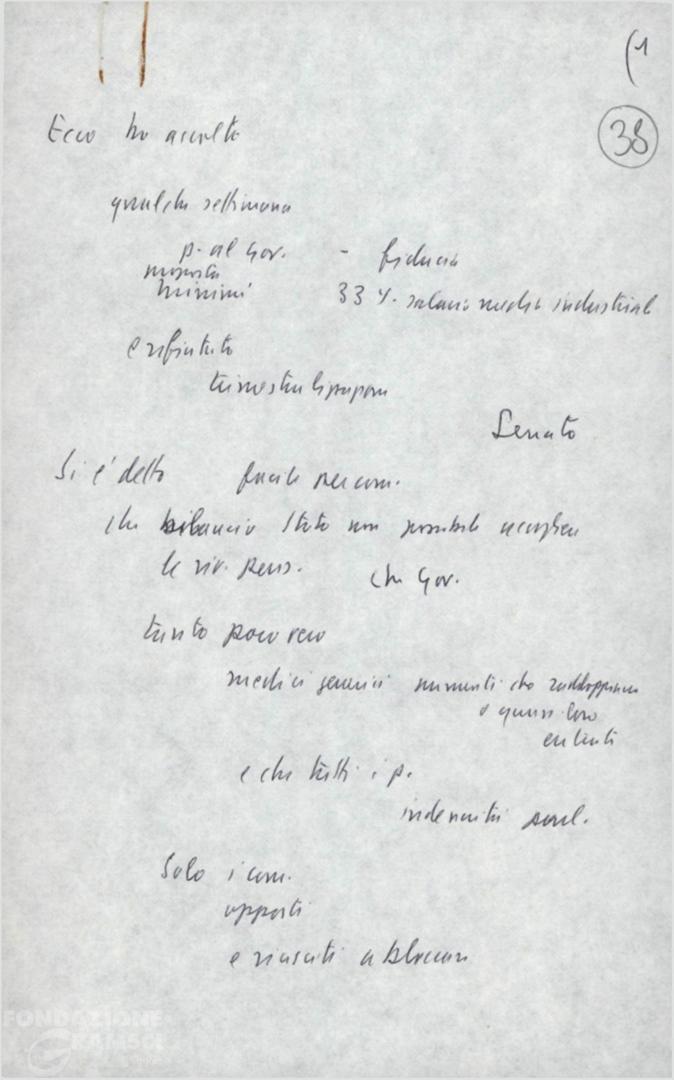 (1
38
Ecco ho accolto
qualche settimana
p. al Gov. - fiducia
minimi 33 %. salario medio industriale
e rifiutato
Senato
Si è detto facile per com.
che bilancio Stato non possibile accogliere
le riv. pens. che Gov.
tanto poco vero
medici generici aumenti che raddoppiano
o quasi loro
entrate
e che tutti i p.
indennità parl.
Solo i com.
opposti
e riusciti a bloccare
FONDAZIONE
GRAMSCI